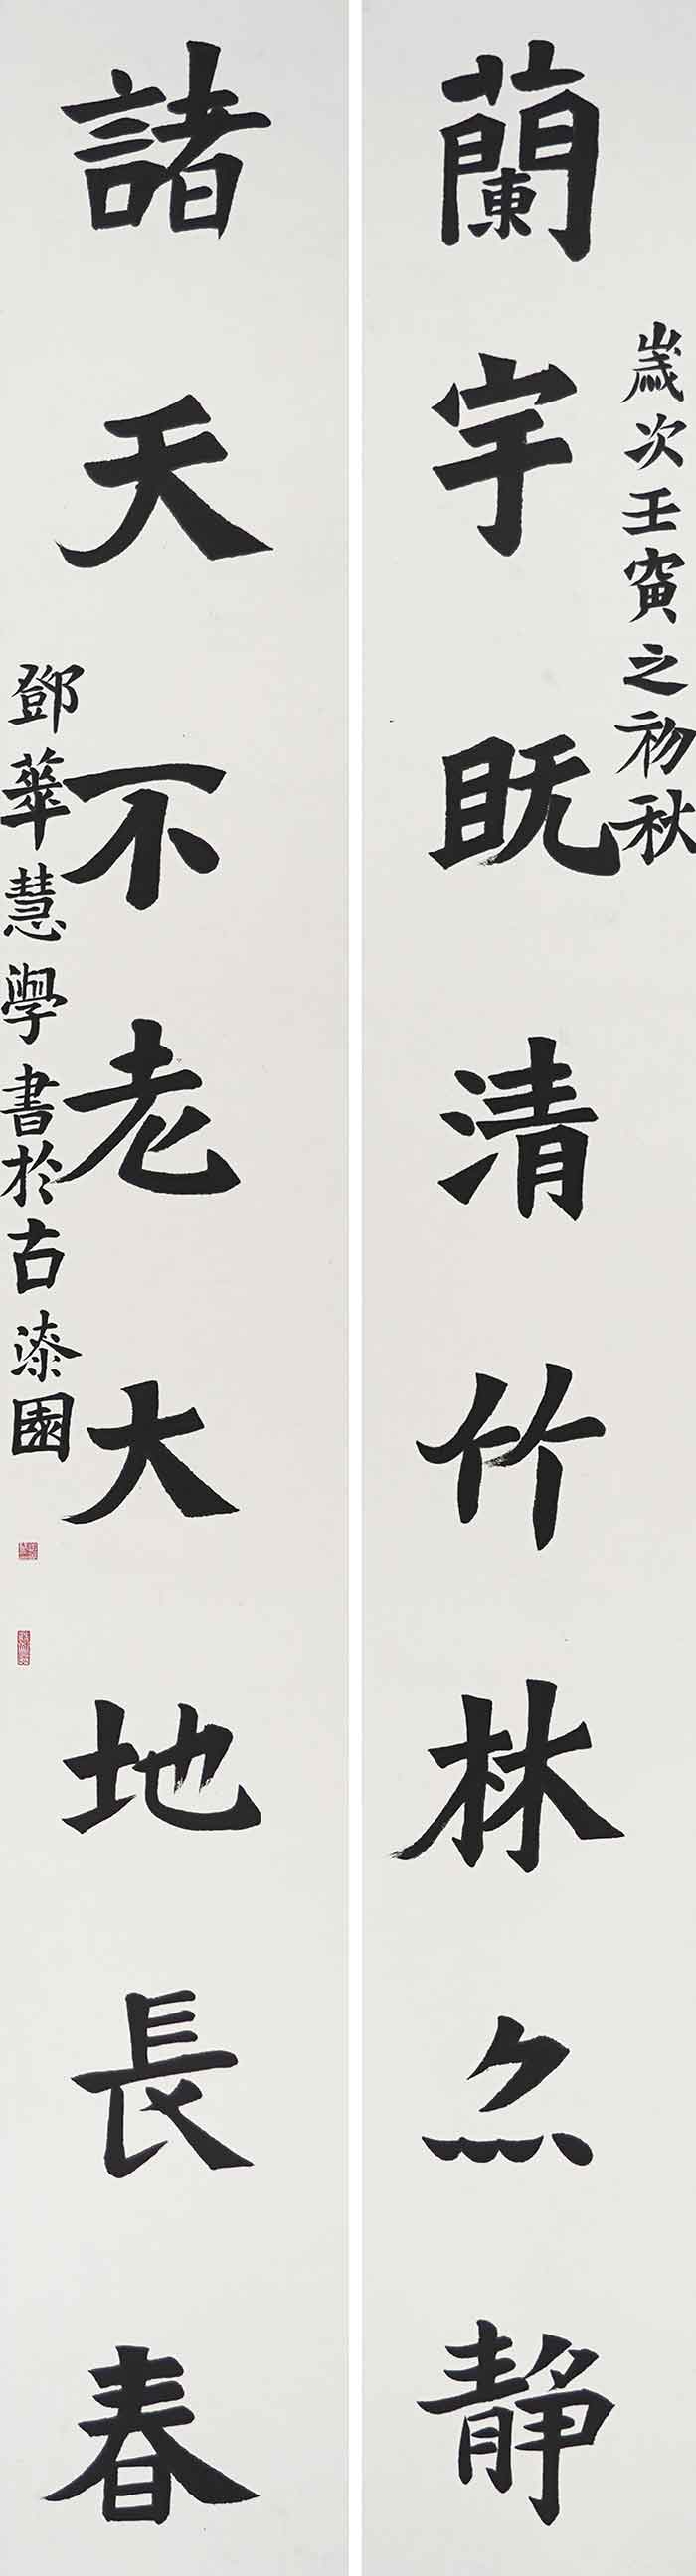 歲次壬寅之初秋
蘭宇既清竹林亦静
諸天不老大地長春
鄧華慧學書於古漆園